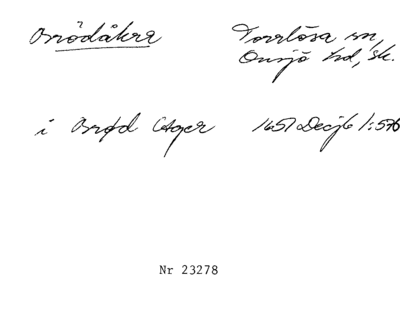 Brödåkra Torrlösa sn,
Onsjö hd, sk.
i Brød Ager 1651 Decjb 1:576
Nr 23278